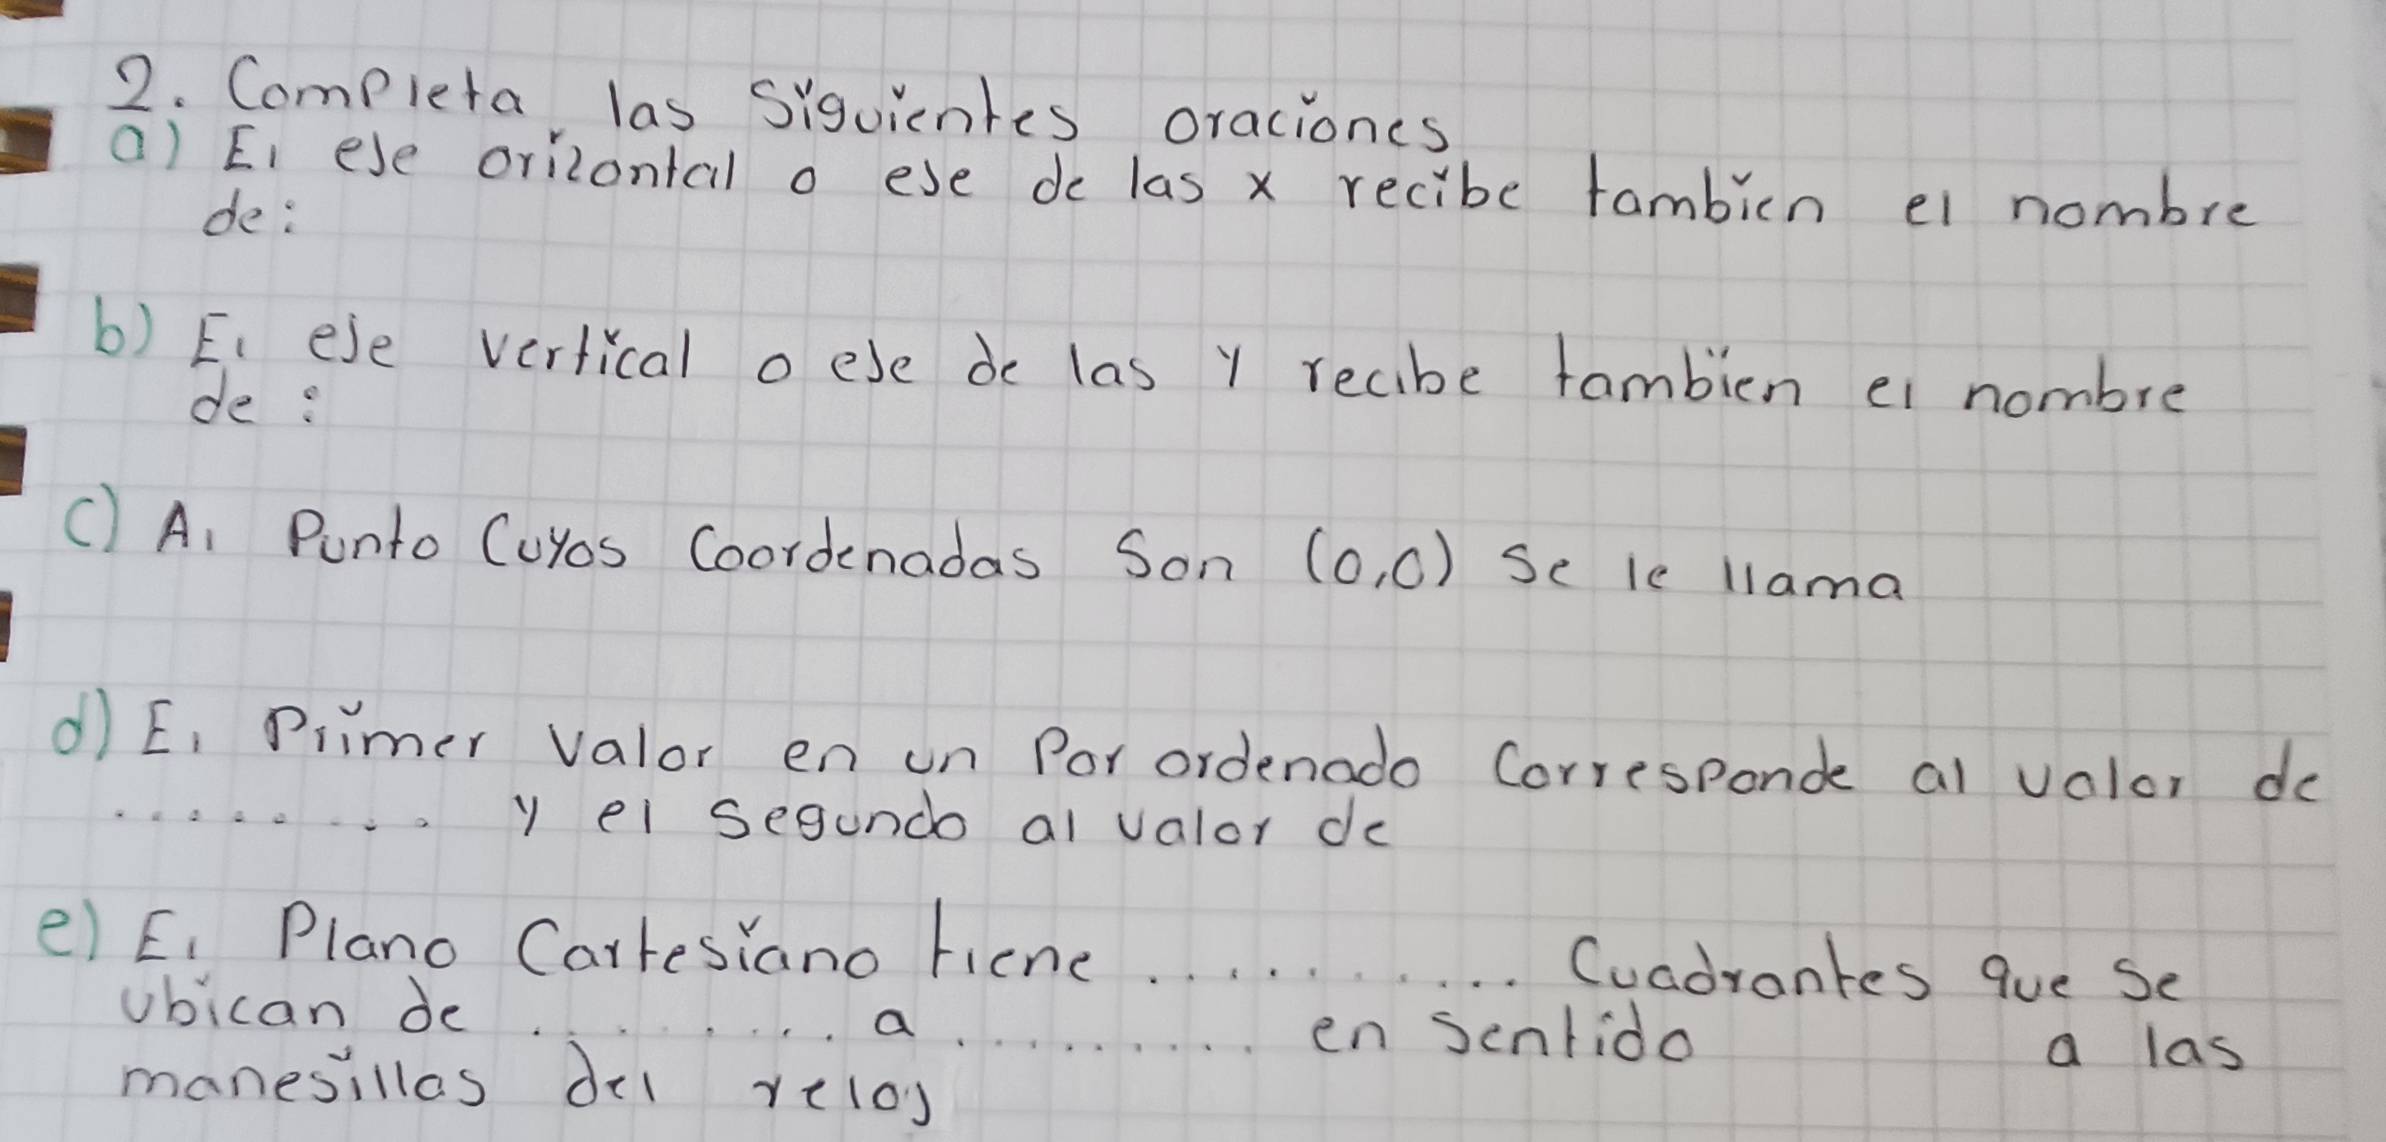 2. Completa las siguientes oraciones
a) El eje orizontal o eje de las x recibe tambien el nombre
de:
b) El eje vertical o eje de las y recibe tambien el nombre
de:
c) Al Punto Cuyos Coordenadas Son (0,0) se le llama
d) El Primer valor en un Par ordenado Corresponde al valor de
......... y el segundo al valor de
e) El Plano Cartesiano tiene .......... Cuadrantes que se
ubican de ........ a ......... en sentido a las
manesillas del reloj